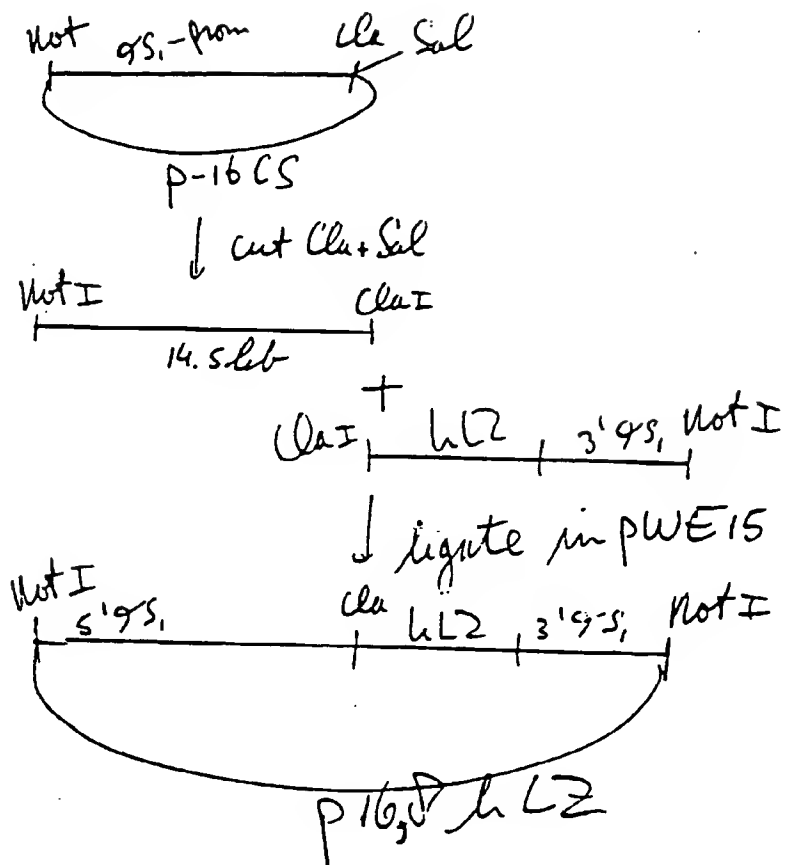 Not αS₁-prom Cla Sal
p-16 CS
↓ cut Cla + Sal
Not I Cla I
14.5 kb
+
Cla I hLZ 3' αS₁ Not I
↓ ligate in pWE15
Not I 5' αS₁ Cla hLZ 3' αS₁ Not I
p 16,8 hLZ